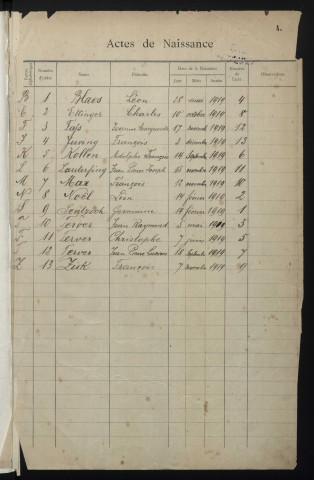 4.
Actes de Naissance
Numéro d'ordre Noms Prénoms Date de la Naissance Numéro de l'acte Observations
Jour Mois Année
B 1 Blaes Léon 28 mai 1919 4
E 2 Ettinger Charles 10 octobre 1919 8
F 3 17 novembre 1919 12
J 4 Jung François 2 décembre 1919 13
K 5 Kollen Adolphe François 14 septembre 1919 6
L 6 Jean Pierre Joseph 15 novembre 1919 11
M 7 Max François 12 novembre 1919 10
N 8 Noël Léon 14 février 1919 2
S 9 Germaine 14 février 1919 1
T 10 Terver Jean Raymond 5 mai 1919 3
T 11 Terver Christophe 7 juin 1919 5
T 12 Terver Jean Pierre 18 septembre 1919 7
Z 13 Zeik François 7 novembre 1919 9